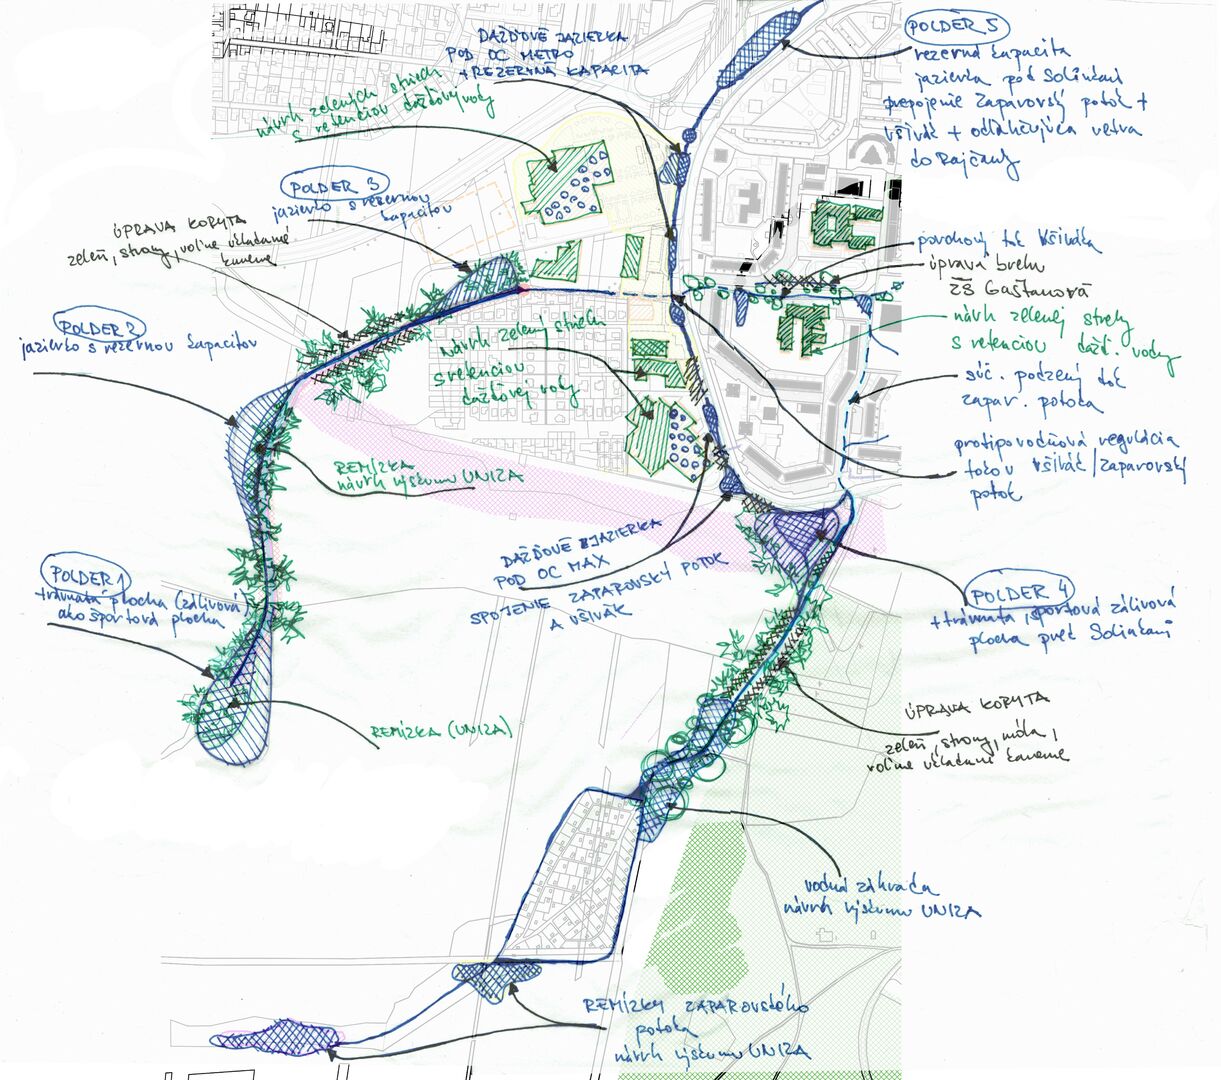 DAŽĎOVÉ JAZIERKA
POD OC METRO
+ REZERVNÁ KAPACITA
návrh zelených striech
s retenciou dažďovej vody
POLDER 3
jazierko s rezervnou
kapacitou
ÚPRAVA KORYTA
zeleň, stromy, voľne ukladané
kamene
POLDER 2
jazierko s rezervnou kapacitou
POLDER 5
rezervná kapacita
jazierka pod Solinkami
prepojenie Zaparovský potok +
Všivák + odľahčujúca vetva
do Rajčanky
povrchový tok Všiváka
úprava brehu
ZŠ Gaštanová
návrh zelenej strechy
s retenciou dažď. vody
súč. podzemný tok
zapar. potoka
protipovodňová regulácia
tokov Všivák/Zaparovský
potok
návrh zelených striech
s retenciou
dažďovej vody
REMÍZKA
návrh výskumu UNIZA
DAŽĎOVÉ JAZIERKA
POD OC MAX
SPOJENIE ZAPAROVSKÝ POTOK
A VŠIVÁK
POLDER 1
trávnatá plocha (zálivová)
ako športová plocha
REMÍZKA (UNIZA)
POLDER 4
+ trávnatá, športová zálivová
plocha pred Solinkami
ÚPRAVA KORYTA
zeleň, stromy, móla,
voľne ukladané kamene
vodná záhrada
návrh výskumu UNIZA
REMÍZKY ZAPAROVského
potoka
návrh výskumu UNIZA